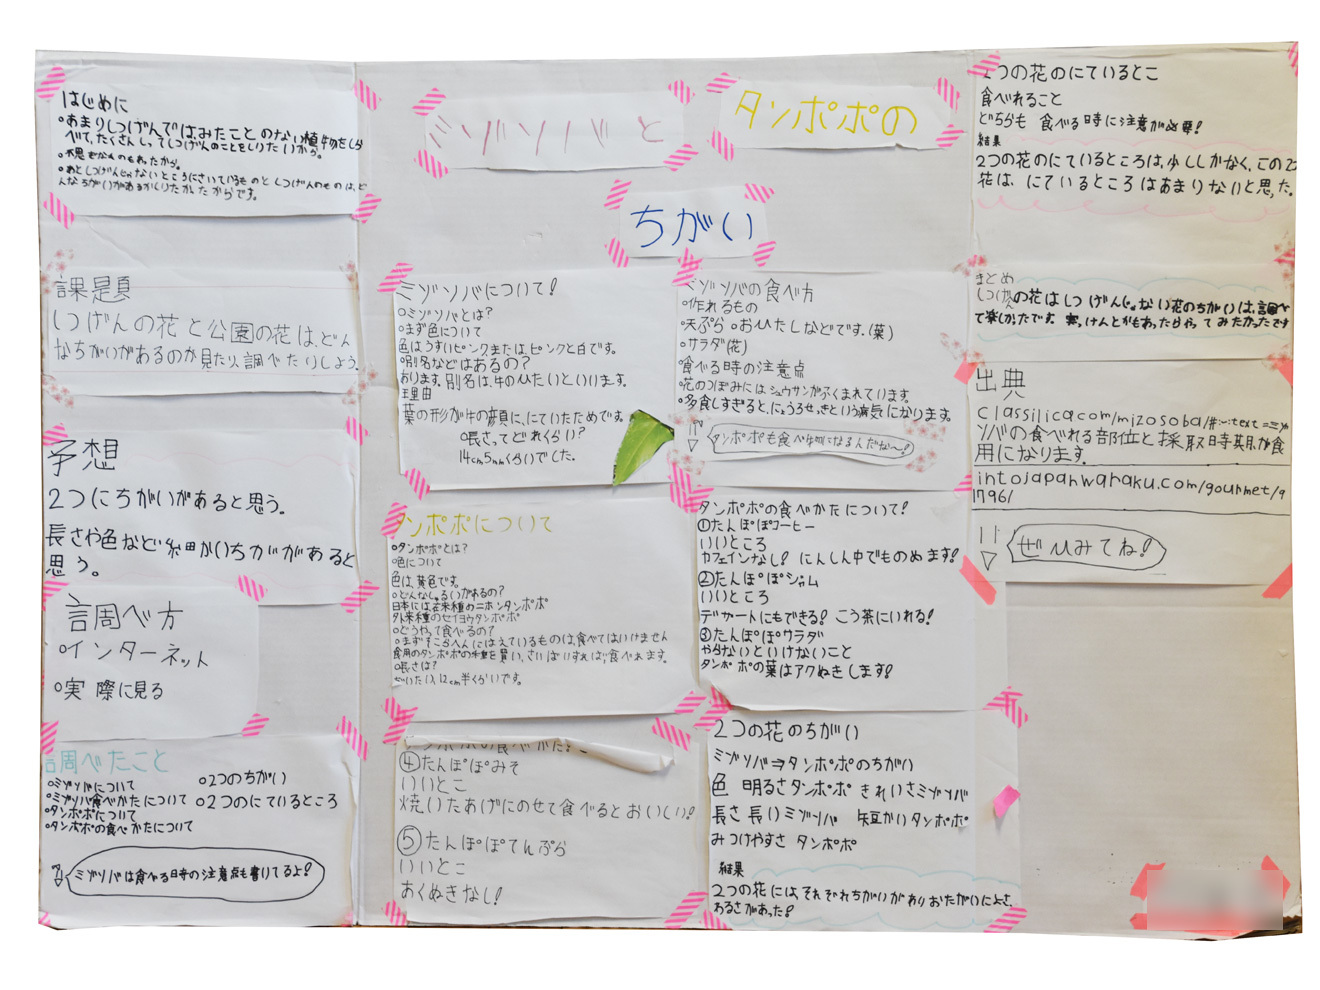 ミゾソバと
タンポポの
ちがい
はじめに
・あまりしつげんではみたことのない植物をしら
べて、たくさんしってしつげんのことをしりたいから。
・不思ぎなものもあったから。
・あとしつげんじゃないところにさいているものとしつげんのものは、ど
んなちがいがあるかしりたかったからです。
課題
しつげんの花と公園の花は、どん
なちがいがあるのか見たり、調べたりしよう。
予想
2つにちがいがあると思う。
長さや色など細かいちがいがあると
思う。
調べ方
・インターネット
・実際に見る
調べたこと
・ミゾソバについて
・ミゾソバ食べかたについて
・タンポポについて
・タンポポの食べかたについて
・2つのちがい
・2つのにているところ
ミゾソバは食べる時の注意点も書いてるよ!
ミゾソバについて!
・ミゾソバとは?
・まず色について
色はうすいピンクまたは、ピンクと白です。
・別名などはあるの?
あります。別名は、牛のひたいといいます。
理由
葉の形が牛の顔に、にていたためです。
・長さってどれくらい?
14cm5mmくらいでした。
タンポポについて
・タンポポとは?
・色について
色は、黄色です。
・どんなしゅるいがあるの?
日本には在来種のニホンタンポポ
外来種のセイヨウタンポポ
・どうやって食べるの?
・まずそこらへんにはえているものは、食べてはいけません
食用のタンポポの種を買い、さいばいすれば食べれます。
・長さは?
だいたい、12cm半くらいです。
タンポポの食べかた!
④たんぽぽみそ
いいとこ
焼いたあげにのせて食べるとおいしい!
⑤たんぽぽてんぷら
いいとこ
あくぬきなし!
ミゾソバの食べ方
・作れるもの
・天ぷら ・おひたしなどです。(葉)
・サラダ(花)
・食べる時の注意点
・花のつぼみにはシュウサンがふくまれています。
・多食しすぎると、にょうろせっきという病気になります。
タンポポも食べ物になるんだな〜!
タンポポの食べかたについて!
①たんぽぽコーヒー
いいところ
カフェインなし! にんしん中でものめます!
②たんぽぽジャム
いいところ
デザートにもできる! こう茶にいれる!
③たんぽぽサラダ
やらないといけないこと
タンポポの葉はアクぬきします!
2つの花のちがい
ミゾソバ⇒タンポポのちがい
色 明るさタンポポ きれいさミゾソバ
長さ 長いミゾソバ 短かいタンポポ
みつけやすさ タンポポ
結果
2つの花には、それぞれちがいがありおたがいによさ、
あるさがあった!
2つの花のにているとこ
食べれること
どちらも 食べる時に注意が必要!
結果
2つの花のにているところは、少ししかなく、この2つ
花は、にているところはあまりないと思った。
まとめ
しつげんの花はしつげんじゃない花のちがいは、調べ
て楽しかったです。実けんとかもあったらやってみたかったです
出典
classilica.com/mizosoba/#:~:text=ミゾ
ソバの食べれる部位と採取時期,が食
用になります。
intojapanwaraku.com/gourmet/9
1796/
ぜひみてね!